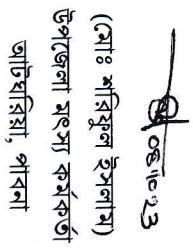 08.10.23
(মোঃ শরিফুল ইসলাম)
উপজেলা মৎস্য কর্মকর্তা
আটঘরিয়া, পাবনা